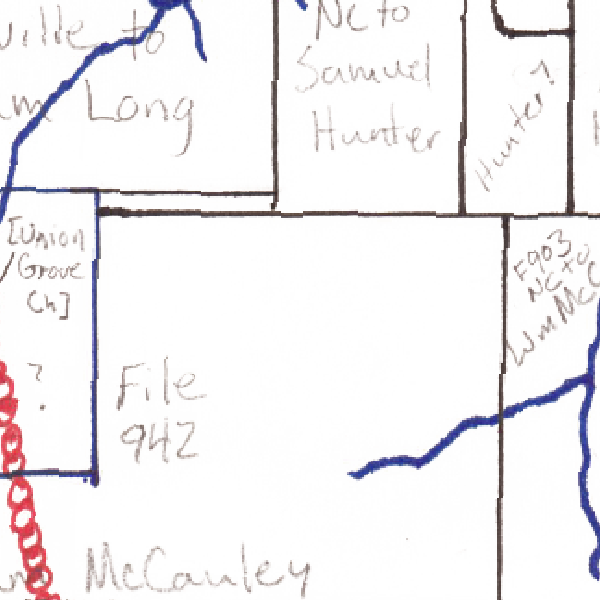 ville to
m Long
NC to
Samuel
Hunter
Hunter?
[Union
/Grove
Ch]
?
File
942
F903
NC to
Wm McC
McCauley